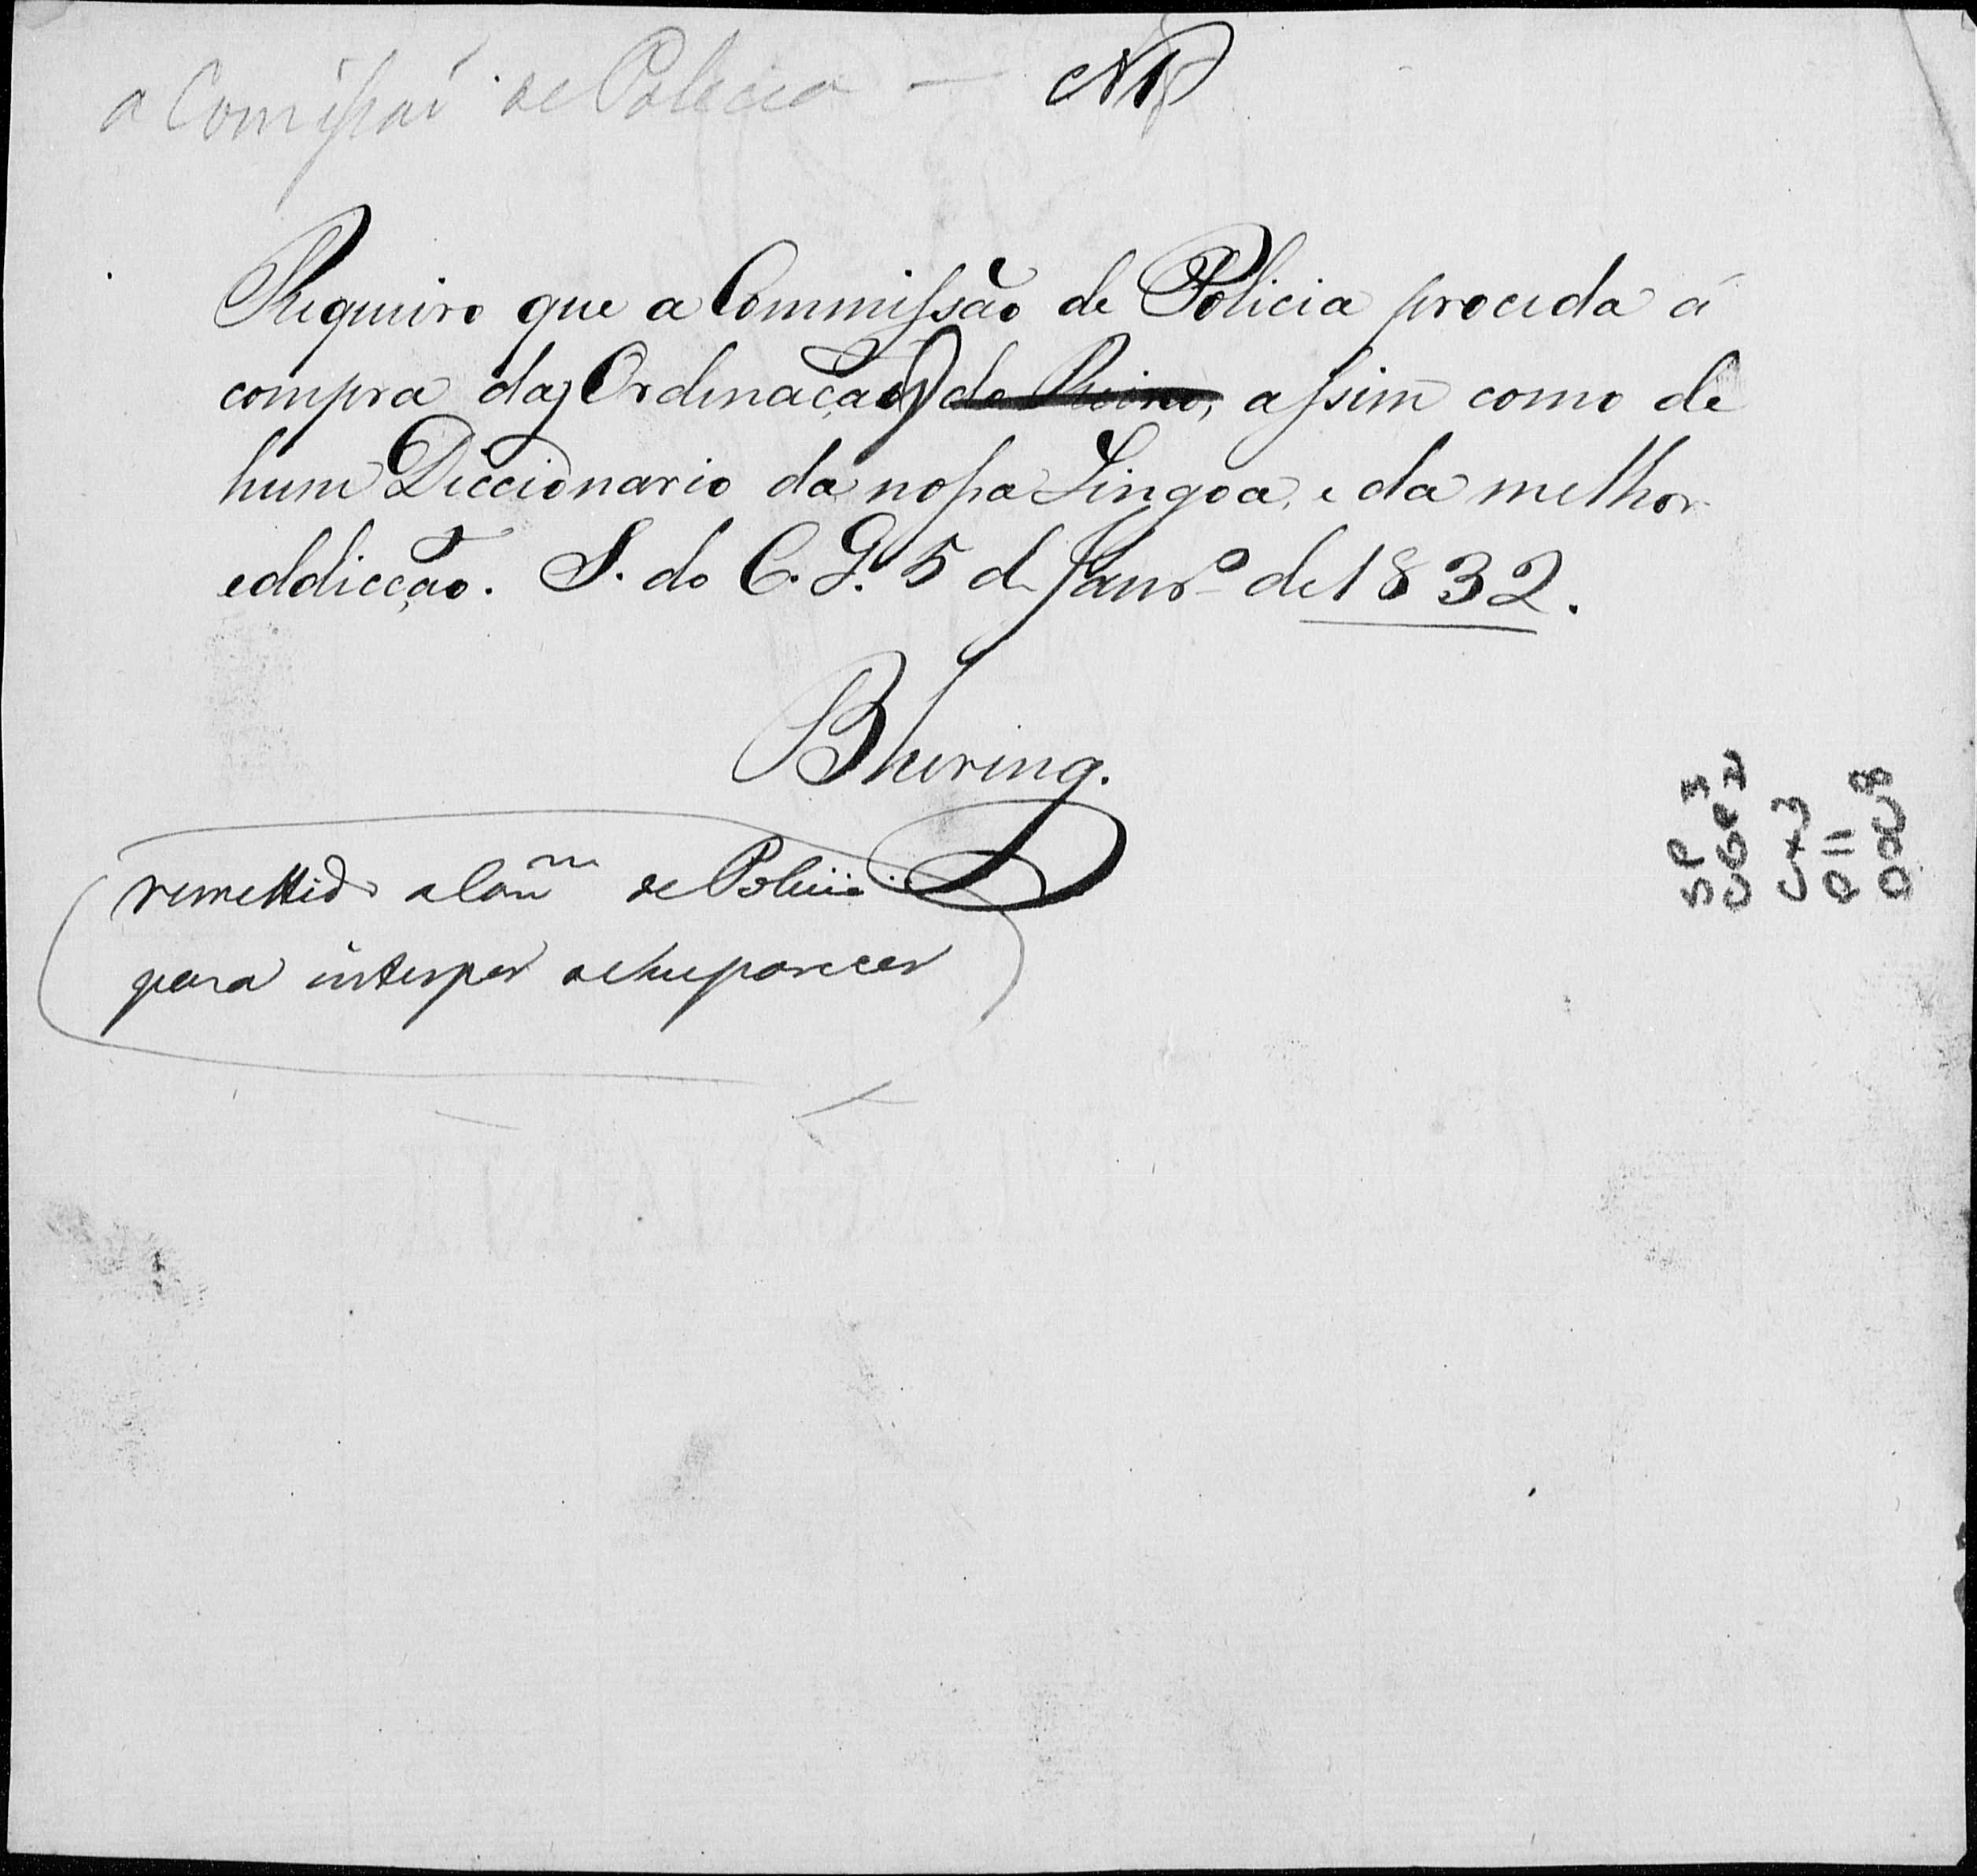 a Comissaõ de Policia — NP
Requeiro que a Commissão de Policia proceda á
compra das Ordenaçaões do Reino, assim como de
hum Diccionario da nossa Lingoa, e da melhor
eddicção. S. do C. G. 5 de Janr.º de 1832.
Bhering.
remettido a Com.m de Policia
para interpor o seu parecer